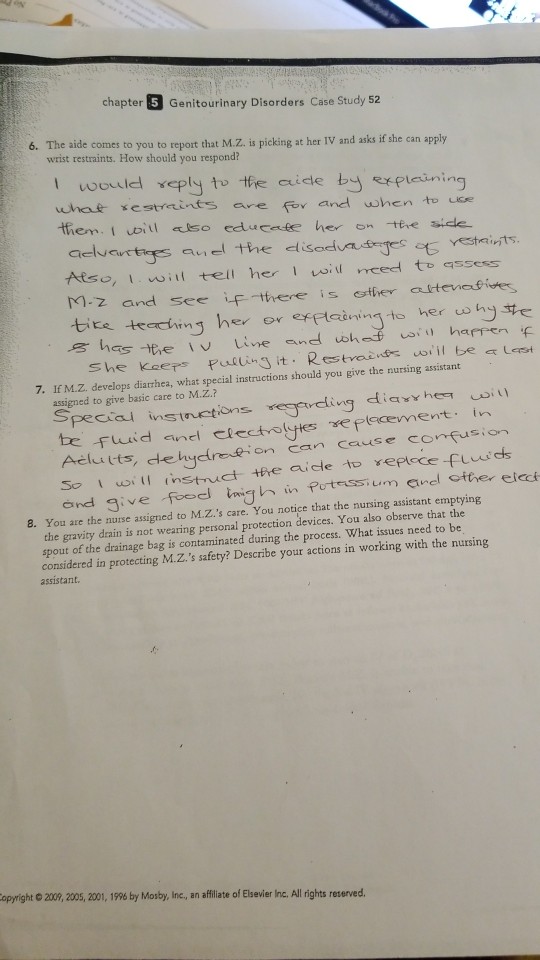 chapter 5 Genitourinary Disorders Case Study 52
6. The aide comes to you to report that M.Z. is picking at her IV and asks if she can apply
wrist restraints. How should you respond?
I would reply to the aide by explaining
what restraints are for and when to use
them. I will also educate her on the side
advantages and the disadvantages of restaints.
Also, I will tell her I will need to assess
M.Z and see if there is other altenatives
like teaching her or explaining to her why she
has the IV line and what will happen if
she keeps pulling it. Restraints will be a last
7. If M.Z. develops diarrhea, what special instructions should you give the nursing assistant
assigned to give basic care to M.Z.?
Special instructions regarding diarrhea will
be fluid and electrolytes replacement. In
Adults, dehydration can cause confusion
so I will instruct the aide to replace fluids
and give food high in potassium and other elect
8. You are the nurse assigned to M.Z.'s care. You notice that the nursing assistant emptying
the gravity drain is not wearing personal protection devices. You also observe that the
spout of the drainage bag is contaminated during the process. What issues need to be
considered in protecting M.Z.'s safety? Describe your actions in working with the nursing
assistant.
Copyright © 2009, 2005, 2001, 1996 by Mosby, Inc., an affiliate of Elsevier Inc. All rights reserved.